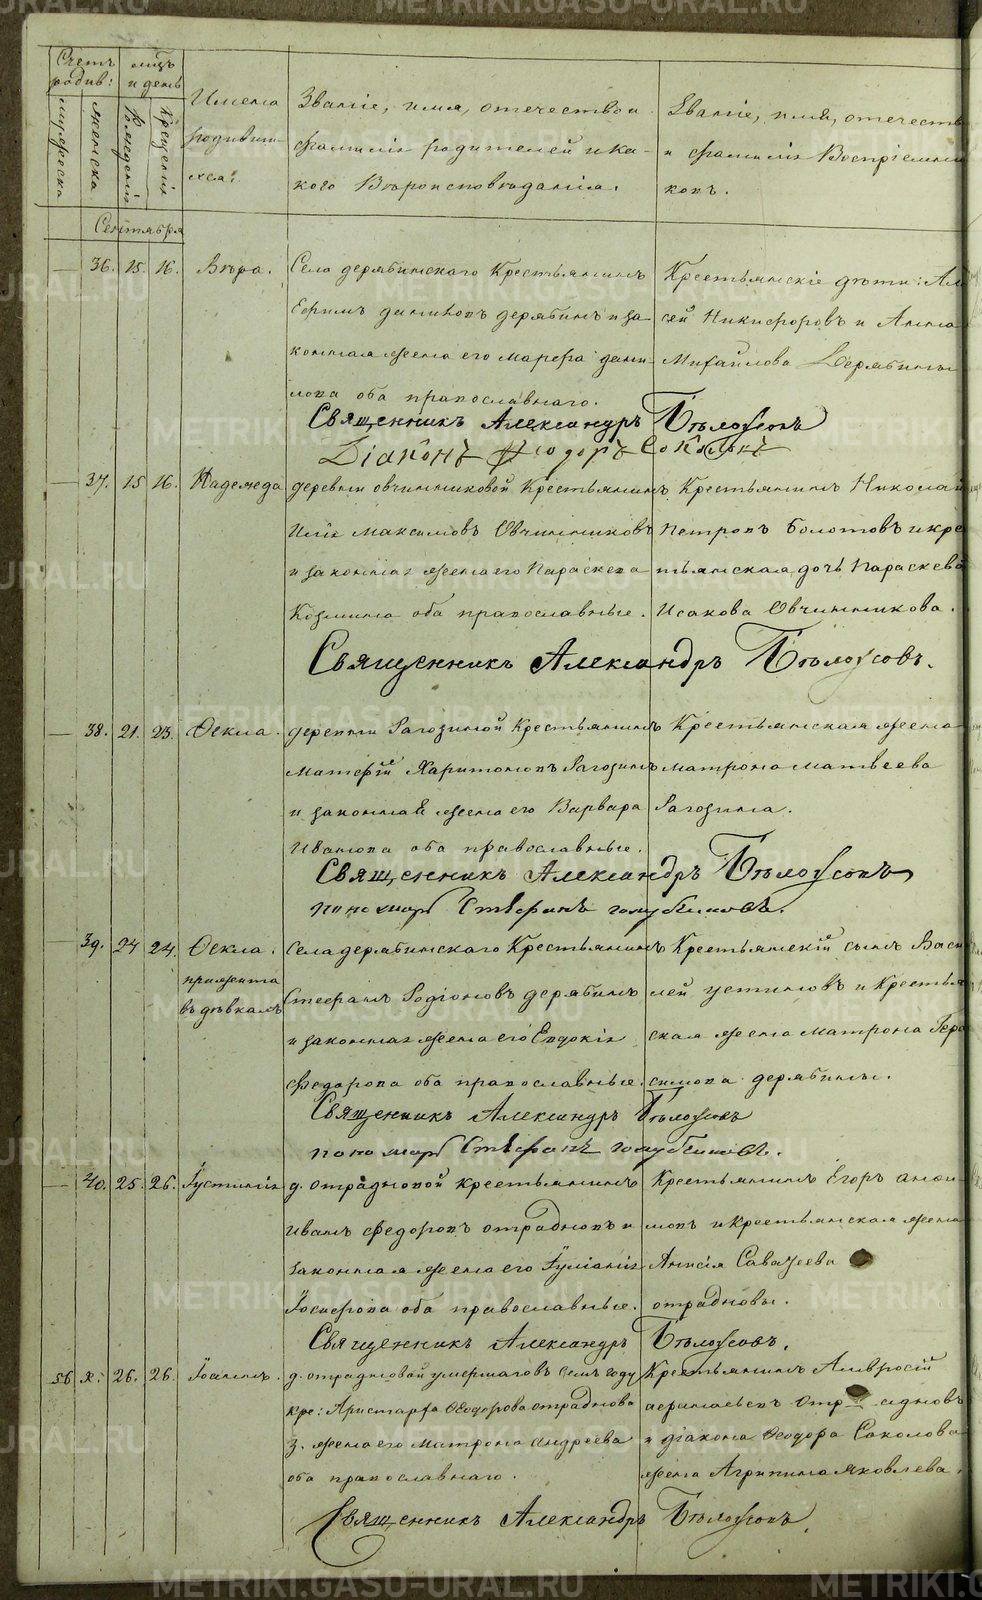 Счетъ родив:
мѣсяцъ и день
Имена родивших-ся.
Званіе, имя, отечество и
фамилія родителей и ка-
кого Вѣроисповѣданія.
Званіе, имя, отечеств
и фамилія Воспріемни
ковъ.
мужеска
женска
Рожденія
Крещенія
Сентября
36. 15. 16. Вѣра.
Села дерябинскаго Крестьянинъ
Ефимъ даниловъ дерябинъ и за-
конная жена его Марфа дани-
лова оба православнаго.
Крестьянскіе дѣти: Ал
сей Никифоровъ и Анна
Михайлова Дерябины
Священникъ Александръ Бѣлоусовъ
Діаконъ Ѳеодоръ Соколовъ
37. 15 16. Надежда
деревни овчинниковой Крестьянинъ
Илія Максимовъ Овчинниковъ
и законная жена его Параскева
Козмина оба православные.
Крестьянинъ Николай
Петровъ Болотовъ и кре
тьянская дочь Параскева
Исакова Овчинникова.
Священникъ Александръ Бѣлоусовъ.
38. 21. 23. Ѳекла.
деревни Рагозиной Крестьянинъ
Матфій Харитоновъ Рагозинъ
и законная жена его Варвара
Иванова оба православные.
Крестьянская жена
матрона матвеева
Рагозина.
Священникъ Александръ Бѣлоусовъ
пономарь Стефанъ голубчиковъ.
39. 24 24. Ѳекла.
прижита
въ дѣвкахъ
села дерябинскаго Крестьянинъ
Стефанъ Родіоновъ дерябинъ
и законная жена его Евдокія
федорова оба православные.
Крестьянскій сынъ Васи
лей устиновъ и Кресть
ская жена матрона Гера
симова дерябины.
Священникъ Александръ Бѣлоусовъ
пономарь Стефанъ голубчиковъ.
40. 25. 26. Іустинія
д. отрадновой крестьянинъ
Иванъ федоровъ отрадновъ и
законная жена его Іуліанія
Іосифова оба православные.
Крестьянинъ Егоръ анфи
мовъ и крестьянская жена
Анисія Саватеева
отрадновы.
Священникъ Александръ Бѣлоусовъ.
56 26. 26. Іоаннъ.
д. отрадновой умершаговъ семъ году
кре: Аристарха Ѳеодорова отраднова
з. жена его Матрона андреева
оба православнаго.
Крестьянинъ Амвросій
отрадновъ
и діакона Ѳеодора Соколова
жена Агрипина яковлева.
Священникъ Александръ Бѣлоусовъ
METRIKI.GASO-URAL.RU